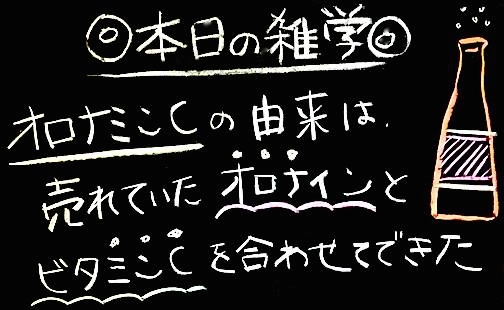 ◎本日の雑学◎
オロナミンCの由来は、
売れていたオロナインと
ビタミンCを合わせてできた